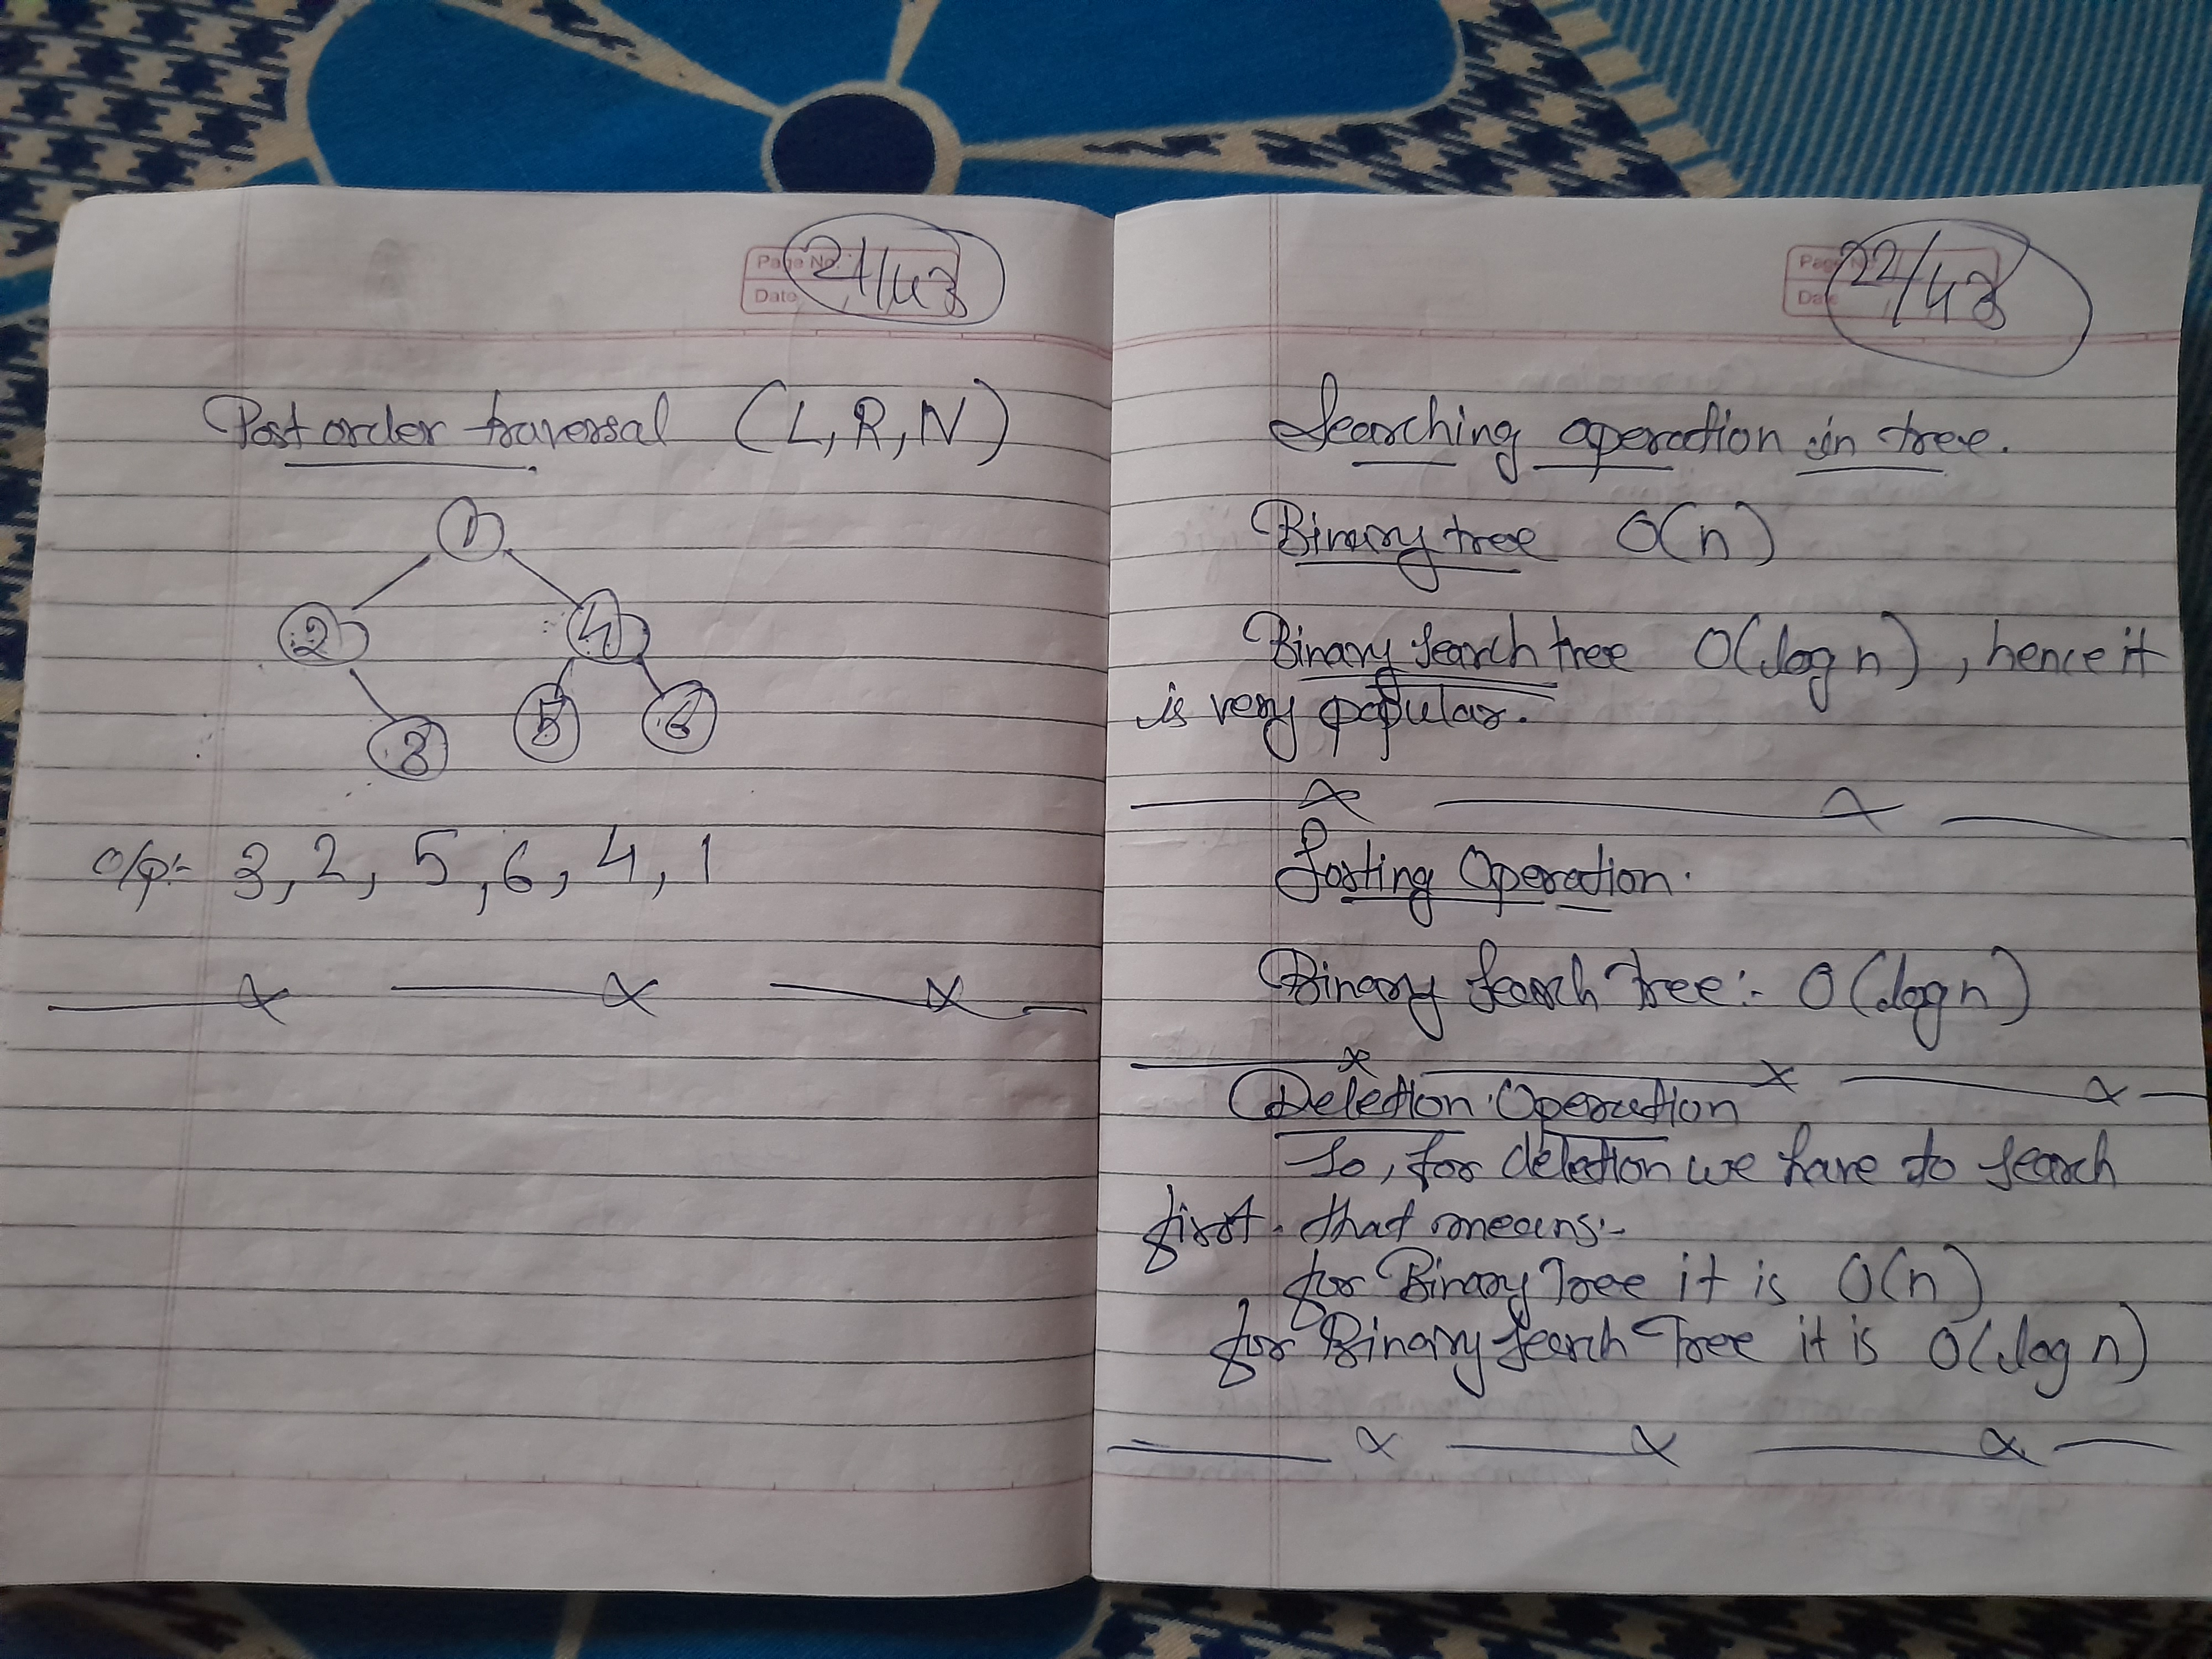 Page No.
Date
21/43
Post order traversal (L,R,N)
1
2
4
3
5
6
o/p:- 3, 2, 5, 6, 4, 1
Page No.
Date
22/43
Searching operation in tree.
Binary tree O(n)
Binary search tree O(log n), hence it
is very popular.
Operation.
Binary Search Tree:- O(log n)
Deletion Operation
So, for deletion we have to search
first. that means:-
for Binary Tree it is O(n)
for Binary Search Tree it is O(log n)